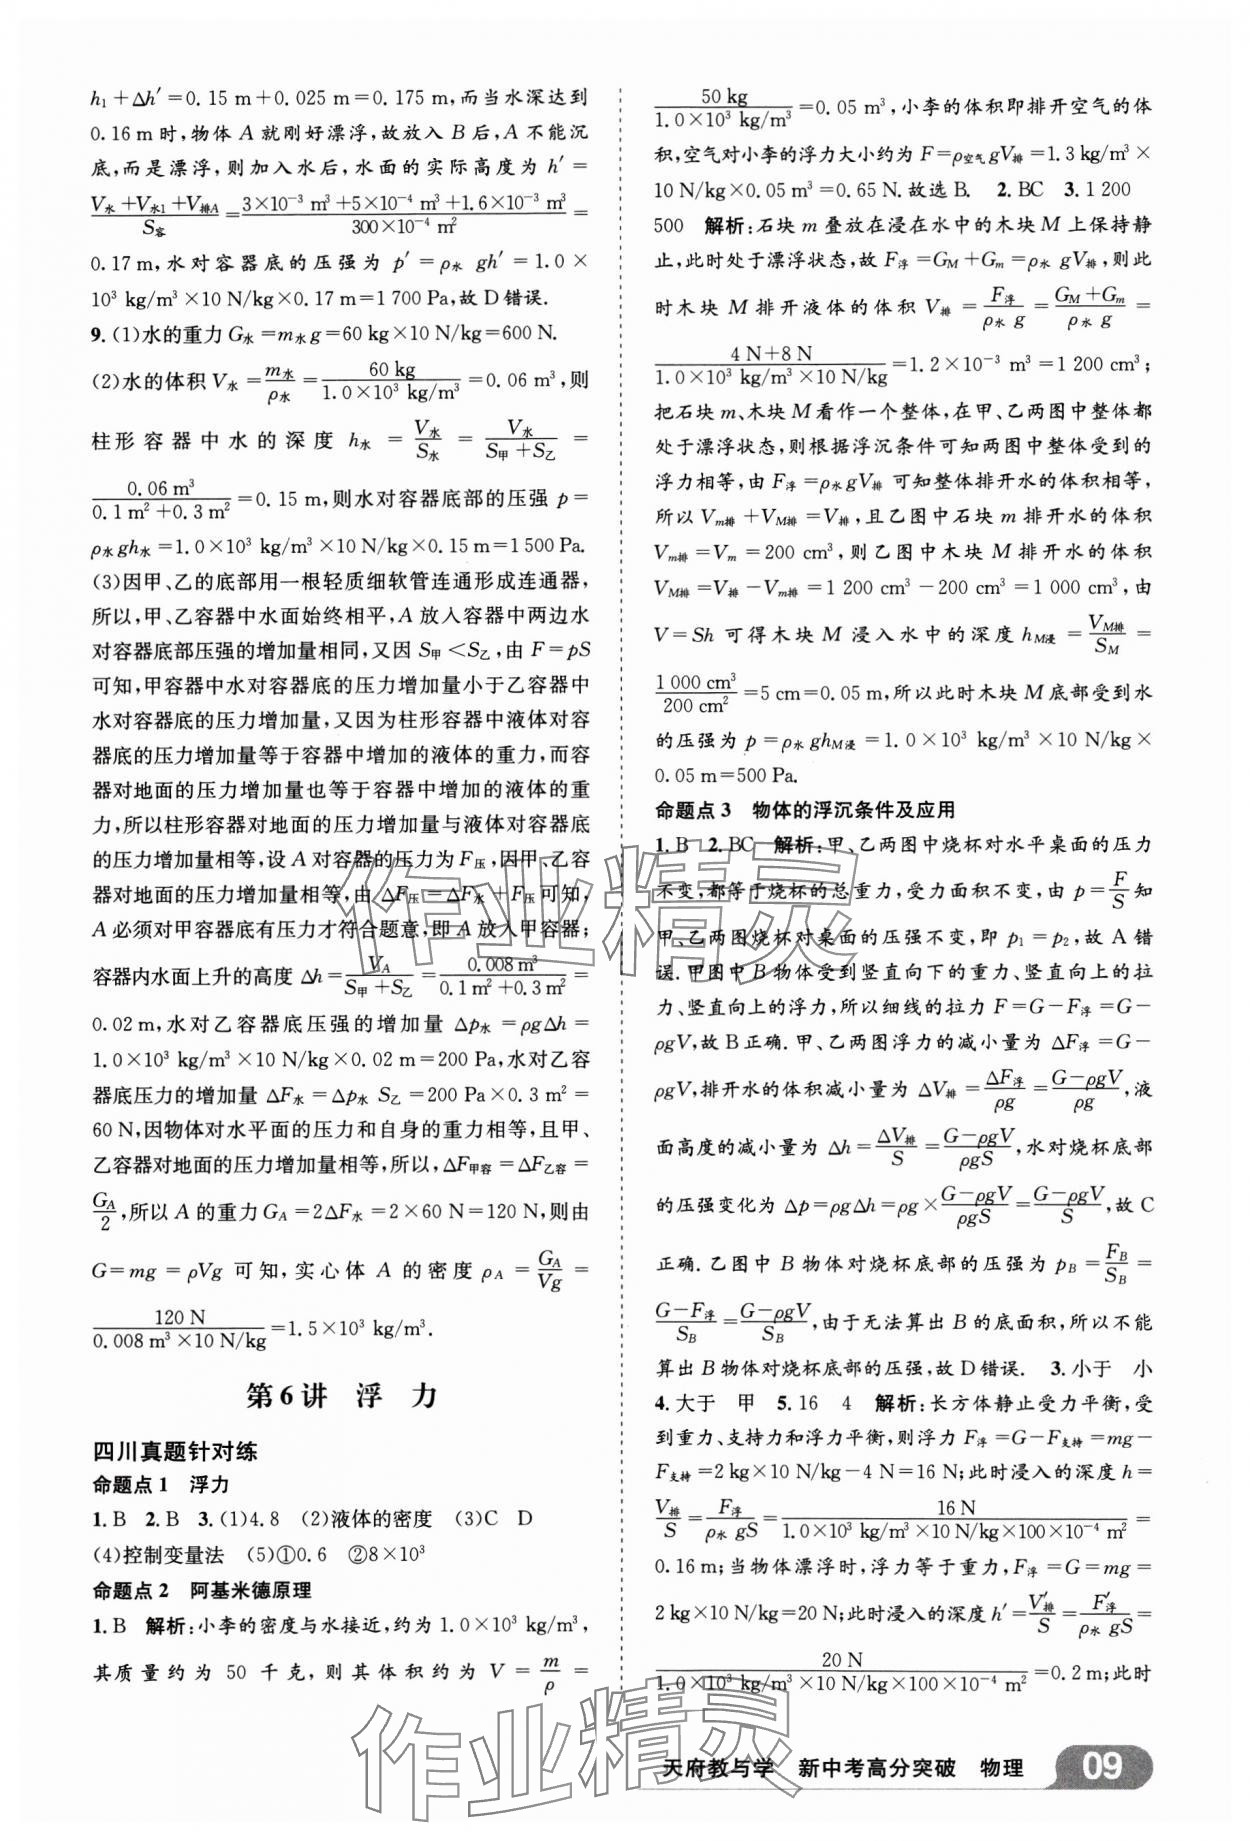 h₁+Δh′=0.15 m+0.025 m=0.175 m,而当水深达到
0.16 m时,物体A就刚好漂浮,故放入B后,A不能沉
底,而是漂浮,则加入水后,水面的实际高度为h′=
(V水+V水1+V排A)/S容=(3×10⁻³ m³+5×10⁻⁴ m³+1.6×10⁻³ m³)/(300×10⁻⁴ m²)=
0.17 m,水对容器底的压强为p′=ρ水gh′=1.0×
10³ kg/m³×10 N/kg×0.17 m=1 700 Pa,故D错误.
9.(1)水的重力G水=m水g=60 kg×10 N/kg=600 N.
(2)水的体积V水=m水/ρ水=60 kg/(1.0×10³ kg/m³)=0.06 m³,则
柱形容器中水的深度h水=V水/S水=V水/(S甲+S乙)=
0.06 m³/(0.1 m²+0.3 m²)=0.15 m,则水对容器底部的压强p=
ρ水gh水=1.0×10³ kg/m³×10 N/kg×0.15 m=1 500 Pa.
(3)因甲、乙的底部用一根轻质细软管连通形成连通器,
所以,甲、乙容器中水面始终相平,A放入容器中两边水
对容器底部压强的增加量相同,又因S甲<S乙,由F=pS
可知,甲容器中水对容器底的压力增加量小于乙容器中
水对容器底的压力增加量,又因为柱形容器中液体对容
器底的压力增加量等于容器中增加的液体的重力,而容
器对地面的压力增加量也等于容器中增加的液体的重
力,所以柱形容器对地面的压力增加量与液体对容器底
的压力增加量相等,设A对容器的压力为F压,因甲、乙容
器对地面的压力增加量相等,由ΔF压=ΔF水+F压可知,
A必须对甲容器底有压力才符合题意,即A放入甲容器;
容器内水面上升的高度Δh=V_A/(S甲+S乙)=0.008 m³/(0.1 m²+0.3 m²)=
0.02 m,水对乙容器底压强的增加量Δp水=ρgΔh=
1.0×10³ kg/m³×10 N/kg×0.02 m=200 Pa,水对乙容
器底压力的增加量ΔF水=Δp水S乙=200 Pa×0.3 m²=
60 N,因物体对水平面的压力和自身的重力相等,且甲、
乙容器对地面的压力增加量相等,所以,ΔF甲容=ΔF乙容=
G_A/2,所以A的重力G_A=2ΔF水=2×60 N=120 N,则由
G=mg=ρVg可知,实心体A的密度ρ_A=G_A/Vg=
120 N/(0.008 m³×10 N/kg)=1.5×10³ kg/m³.
第6讲 浮 力
四川真题针对练
命题点1 浮力
1.B 2.B 3.(1)4.8 (2)液体的密度 (3)C D
(4)控制变量法 (5)①0.6 ②8×10³
命题点2 阿基米德原理
1.B 解析:小李的密度与水接近,约为1.0×10³ kg/m³,
其质量约为50千克,则其体积约为V=m/ρ=
50 kg/(1.0×10³ kg/m³)=0.05 m³,小李的体积即排开空气的体
积,空气对小李的浮力大小约为F=ρ空气gV排=1.3 kg/m³×
10 N/kg×0.05 m³=0.65 N.故选B. 2.BC 3.1 200
500 解析:石块m叠放在浸在水中的木块M上保持静
止,此时处于漂浮状态,故F浮=G_M+G_m=ρ水gV排,则此
时木块M排开液体的体积V排=F浮/(ρ水g)=(G_M+G_m)/(ρ水g)=
(4 N+8 N)/(1.0×10³ kg/m³×10 N/kg)=1.2×10⁻³ m³=1 200 cm³;
把石块m、木块M看作一个整体,在甲、乙两图中整体都
处于漂浮状态,则根据浮沉条件可知两图中整体受到的
浮力相等,由F浮=ρ水gV排可知整体排开水的体积相等,
所以V_m排+V_M排=V排,且乙图中石块m排开水的体积
V_m排=V_m=200 cm³,则乙图中木块M排开水的体积
V_M排=V排-V_m排=1 200 cm³-200 cm³=1 000 cm³,由
V=Sh可得木块M浸入水中的深度h_M浸=V_M排/S_M=
1 000 cm³/200 cm²=5 cm=0.05 m,所以此时木块M底部受到水
的压强为p=ρ水gh_M浸=1.0×10³ kg/m³×10 N/kg×
0.05 m=500 Pa.
命题点3 物体的浮沉条件及应用
1.B 2.BC 解析:甲、乙两图中烧杯对水平桌面的压力
不变,都等于烧杯的总重力,受力面积不变,由p=F/S知
甲、乙两图烧杯对桌面的压强不变,即p₁=p₂,故A错
误.甲图中B物体受到竖直向下的重力、竖直向上的拉
力、竖直向上的浮力,所以细线的拉力F=G-F浮=G-
ρgV,故B正确.甲、乙两图浮力的减小量为ΔF浮=G-
ρgV,排开水的体积减小量为ΔV排=ΔF浮/ρg=(G-ρgV)/ρg,液
面高度的减小量为Δh=ΔV排/S=(G-ρgV)/ρgS,水对烧杯底部
的压强变化为Δp=ρgΔh=ρg×(G-ρgV)/ρgS=(G-ρgV)/S,故C
正确.乙图中B物体对烧杯底部的压强为p_B=F_B/S_B=
(G-F浮)/S_B=(G-ρgV)/S_B,由于无法算出B的底面积,所以不能
算出B物体对烧杯底部的压强,故D错误. 3.小于 小
4.大于 甲 5.16 4 解析:长方体静止受力平衡,受
到重力、支持力和浮力平衡,则浮力F浮=G-F支持=mg-
F支持=2 kg×10 N/kg-4 N=16 N;此时浸入的深度h=
V排/S=F浮/(ρ水gS)=16 N/(1.0×10³ kg/m³×10 N/kg×100×10⁻⁴ m²)=
0.16 m;当物体漂浮时,浮力等于重力,F浮=G=mg=
2 kg×10 N/kg=20 N;此时浸入的深度h′=V′排/S=F′浮/(ρ水gS)=
20 N/(1.0×10³ kg/m³×10 N/kg×100×10⁻⁴ m²)=0.2 m;此时
作业精灵
作业精灵
天府教与学 新中考高分突破 物理 09